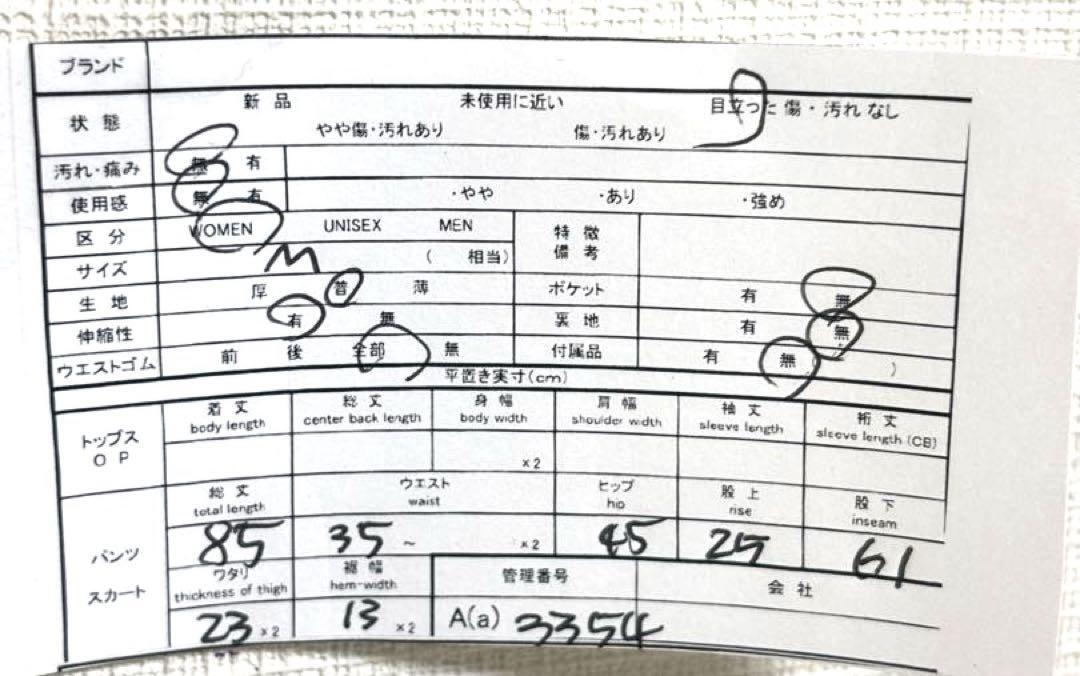 ブランド
状態 新品 未使用に近い 目立った傷・汚れなし
やや傷・汚れあり 傷・汚れあり
汚れ・痛み 無 有
使用感 無 有 ・やや ・あり ・強め
区分 WOMEN UNISEX MEN 特徴備考
サイズ M ( 相当)
生地 厚 普 薄 ポケット 有 無
伸縮性 有 無 裏地 有 無
ウエストゴム 前 後 全部 無 付属品 有 無 )
平置き実寸(cm)
トップス OP 着丈 総丈 身幅 肩幅 袖丈 裄丈
body length center back length body width shoulder width sleeve length sleeve length (CB)
×2
パンツ スカート 総丈 ウエスト ヒップ 股上 股下
total length waist hip rise inseam
85 35 ~ ×2 45 25 61
ワタリ 裾幅 管理番号 会社
thickness of thigh hem-width
23 ×2 13 ×2 A(a) 3354